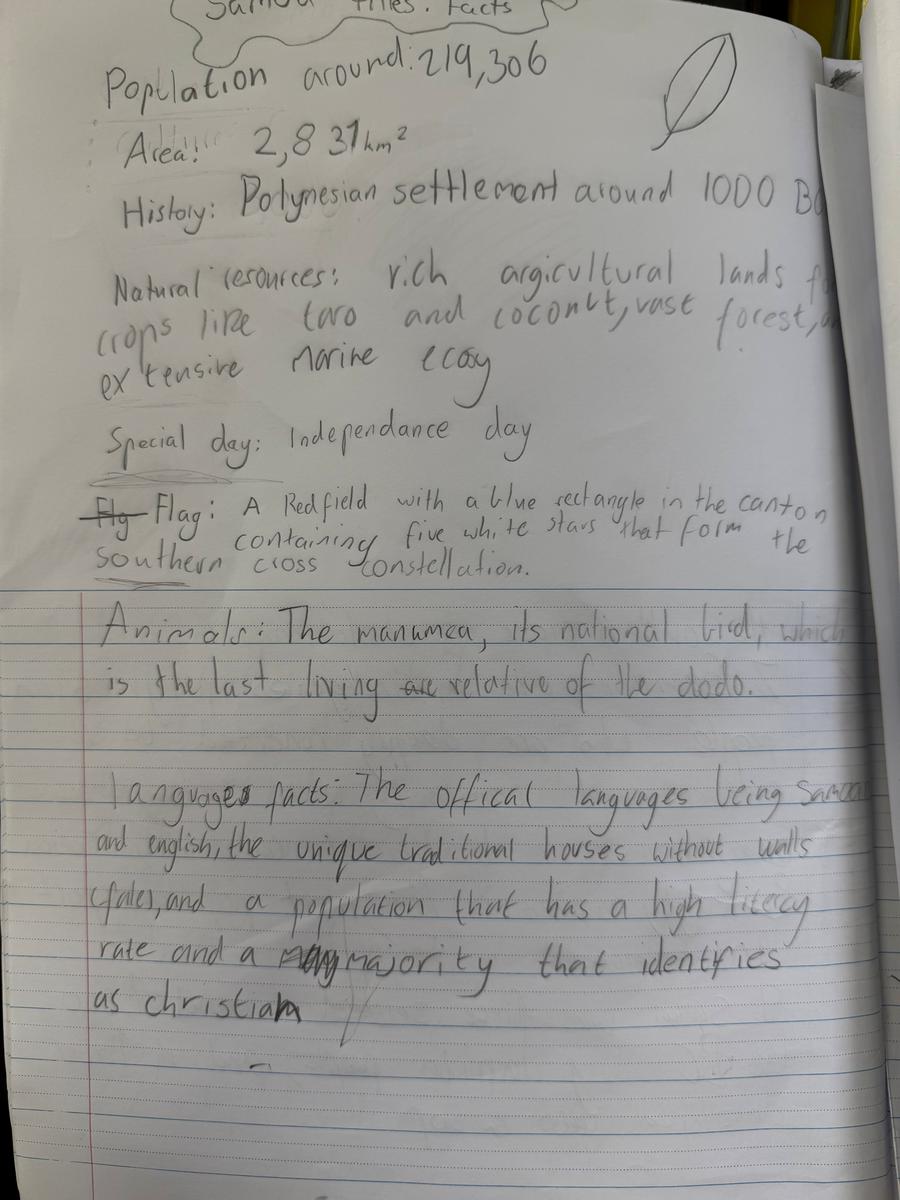 Samoa titles. Facts
Poptlation around: 219,306
Area: 2,831km²
History: Polynesian settlement around 1000
Natural resources: rich argicultural lands
crops like taro and coconut, vast forest,
extensive marine
Special day: Independance day
Flg Flag: A Red field with a blue rectangle in the canton
containing five white stars that form the
southern cross constellation.
Animals: The manumea, its national bird, which
is the last living are relative of the dodo.
languages facts: The offical languages being Samoa
and english, the unique traditional houses without walls
(fale), and a population that has a high litercy
rate and a majority that identifies
as christian